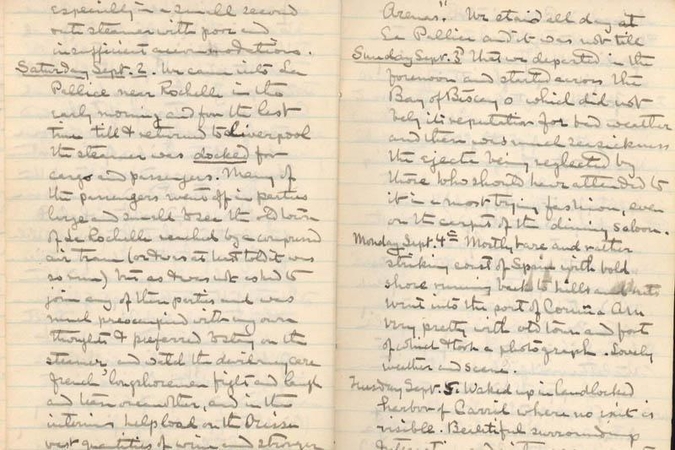 especially in a small second
rate steamer with poor and
insufficient accommodations.
Saturday Sept. 2. We came into La
Pallice near Rochelle in the
early morning and for the last
time till I returned to Liverpool
the steamer was docked for
cargo and passengers. Many of
the passengers went off in parties
large and small to see the old town
of La Rochelle reached by a compressed
air tram (or was at least told it was
so run) but as I was not asked to
join any of their parties and was
much preoccupied with my own
thoughts I preferred to stay on the
steamer, and watch the
French longshoremen fight and laugh
and one another, and in the
interims help load on the Orissa
vast quantities of wine and stronger
Arenas." We staid all day at
La Pallice and it was not till
Sunday Sept. 3 that we departed in the
forenoon and started across the
Bay of Biscay which did not
bely its reputation for bad weather
and there was much seasickness
the ejecta being neglected by
those who should have attended to
it in a most trying fashion, even
on the carpet of the dining saloon.
Monday Sept. 4th Mostly bare and rather
striking coast of Spain with bold
shore running back to hills and
Went into the port of Coruña A.M.
Very pretty with old town and fort
of which I took a photograph. Lovely
weather and scene.
Tuesday Sept. 5. Waked up in landlocked
harbor of Carril where no exit is
visible. Beautiful surroundings